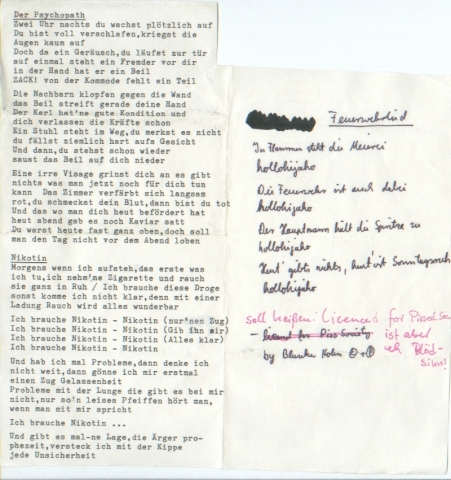 Der Psychopath
Zwei Uhr nachts du wachst plötzlich auf
Du bist voll verschlafen,kriegst die
Augen kaum auf
Doch da ein Geräusch,du läufst zur tür
auf einmal steht ein Fremder vor dir
in der Hand hat er ein Beil
ZACK! von der Kommode fehlt ein Teil
Die Nachbarn klopfen gegen die Wand
das Beil streift gerade deine Hand
Der Kerl hat'ne gute Kondition und
dich verlassen die Kräfte schon
Ein Stuhl steht im Weg,du merkst es nicht
du fällst ziemlich hart aufs Gesicht
Und dann,du stehst schon wieder
saust das Beil auf dich nieder
Eine irre Visage grinst dich an es gibt
nichts was man jetzt noch für dich tun
kann  Das Zimmer verfärbt sich langsam
rot,du schmeckst dein Blut,dann bist du tot
Und das wo man dich heut befördert hat
heut abend gab es noch Kaviar satt
Du warst heute fast ganz oben,doch soll
man den Tag nicht vor dem Abend loben
Nikotin
Morgens wenn ich aufsteh,das erste was
ich tu,ich nehm'ne Zigarette und rauch
sie ganz in Ruh / Ich brauche diese Droge
sonst komme ich nicht klar,denn mit einer
Ladung Rauch wird alles wunderbar
Ich brauche Nikotin - Nikotin (nur'nen Zug)
Ich brauche Nikotin - Nikotin (Gib ihn mir)
Ich brauche Nikotin - Nikotin (Alles klar)
Ich brauche Nikotin - Nikotin
Und hab ich mal Probleme,dann denke ich
nicht weit,dann gönne ich mir erstmal
einen Zug Gelassenheit
Probleme mit der Lunge die gibt es bei mir
nicht,nur so'n leises Pfeiffen hört man,
wenn man mit mir spricht
Ich brauche Nikotin ...
Und gibt es mal-ne Lage,die Ärger pro-
phezeit,versteck ich mit der Kippe
jede Unsicherheit
Feuerwehrlied
In Hammer steht die Meierei
hollohijaho
Die Feuerwehr ist auch dabei
hollohijaho
Der Hauptmann hält die Spritze zu
hollohijaho
Heut' gibts nichts, heut' ist Sonntagsruh
hollohijaho
soll heißen: Licenced for Pissed
- for Piss Society ist aber
by Blanke Hohn Blöd-
sinn!